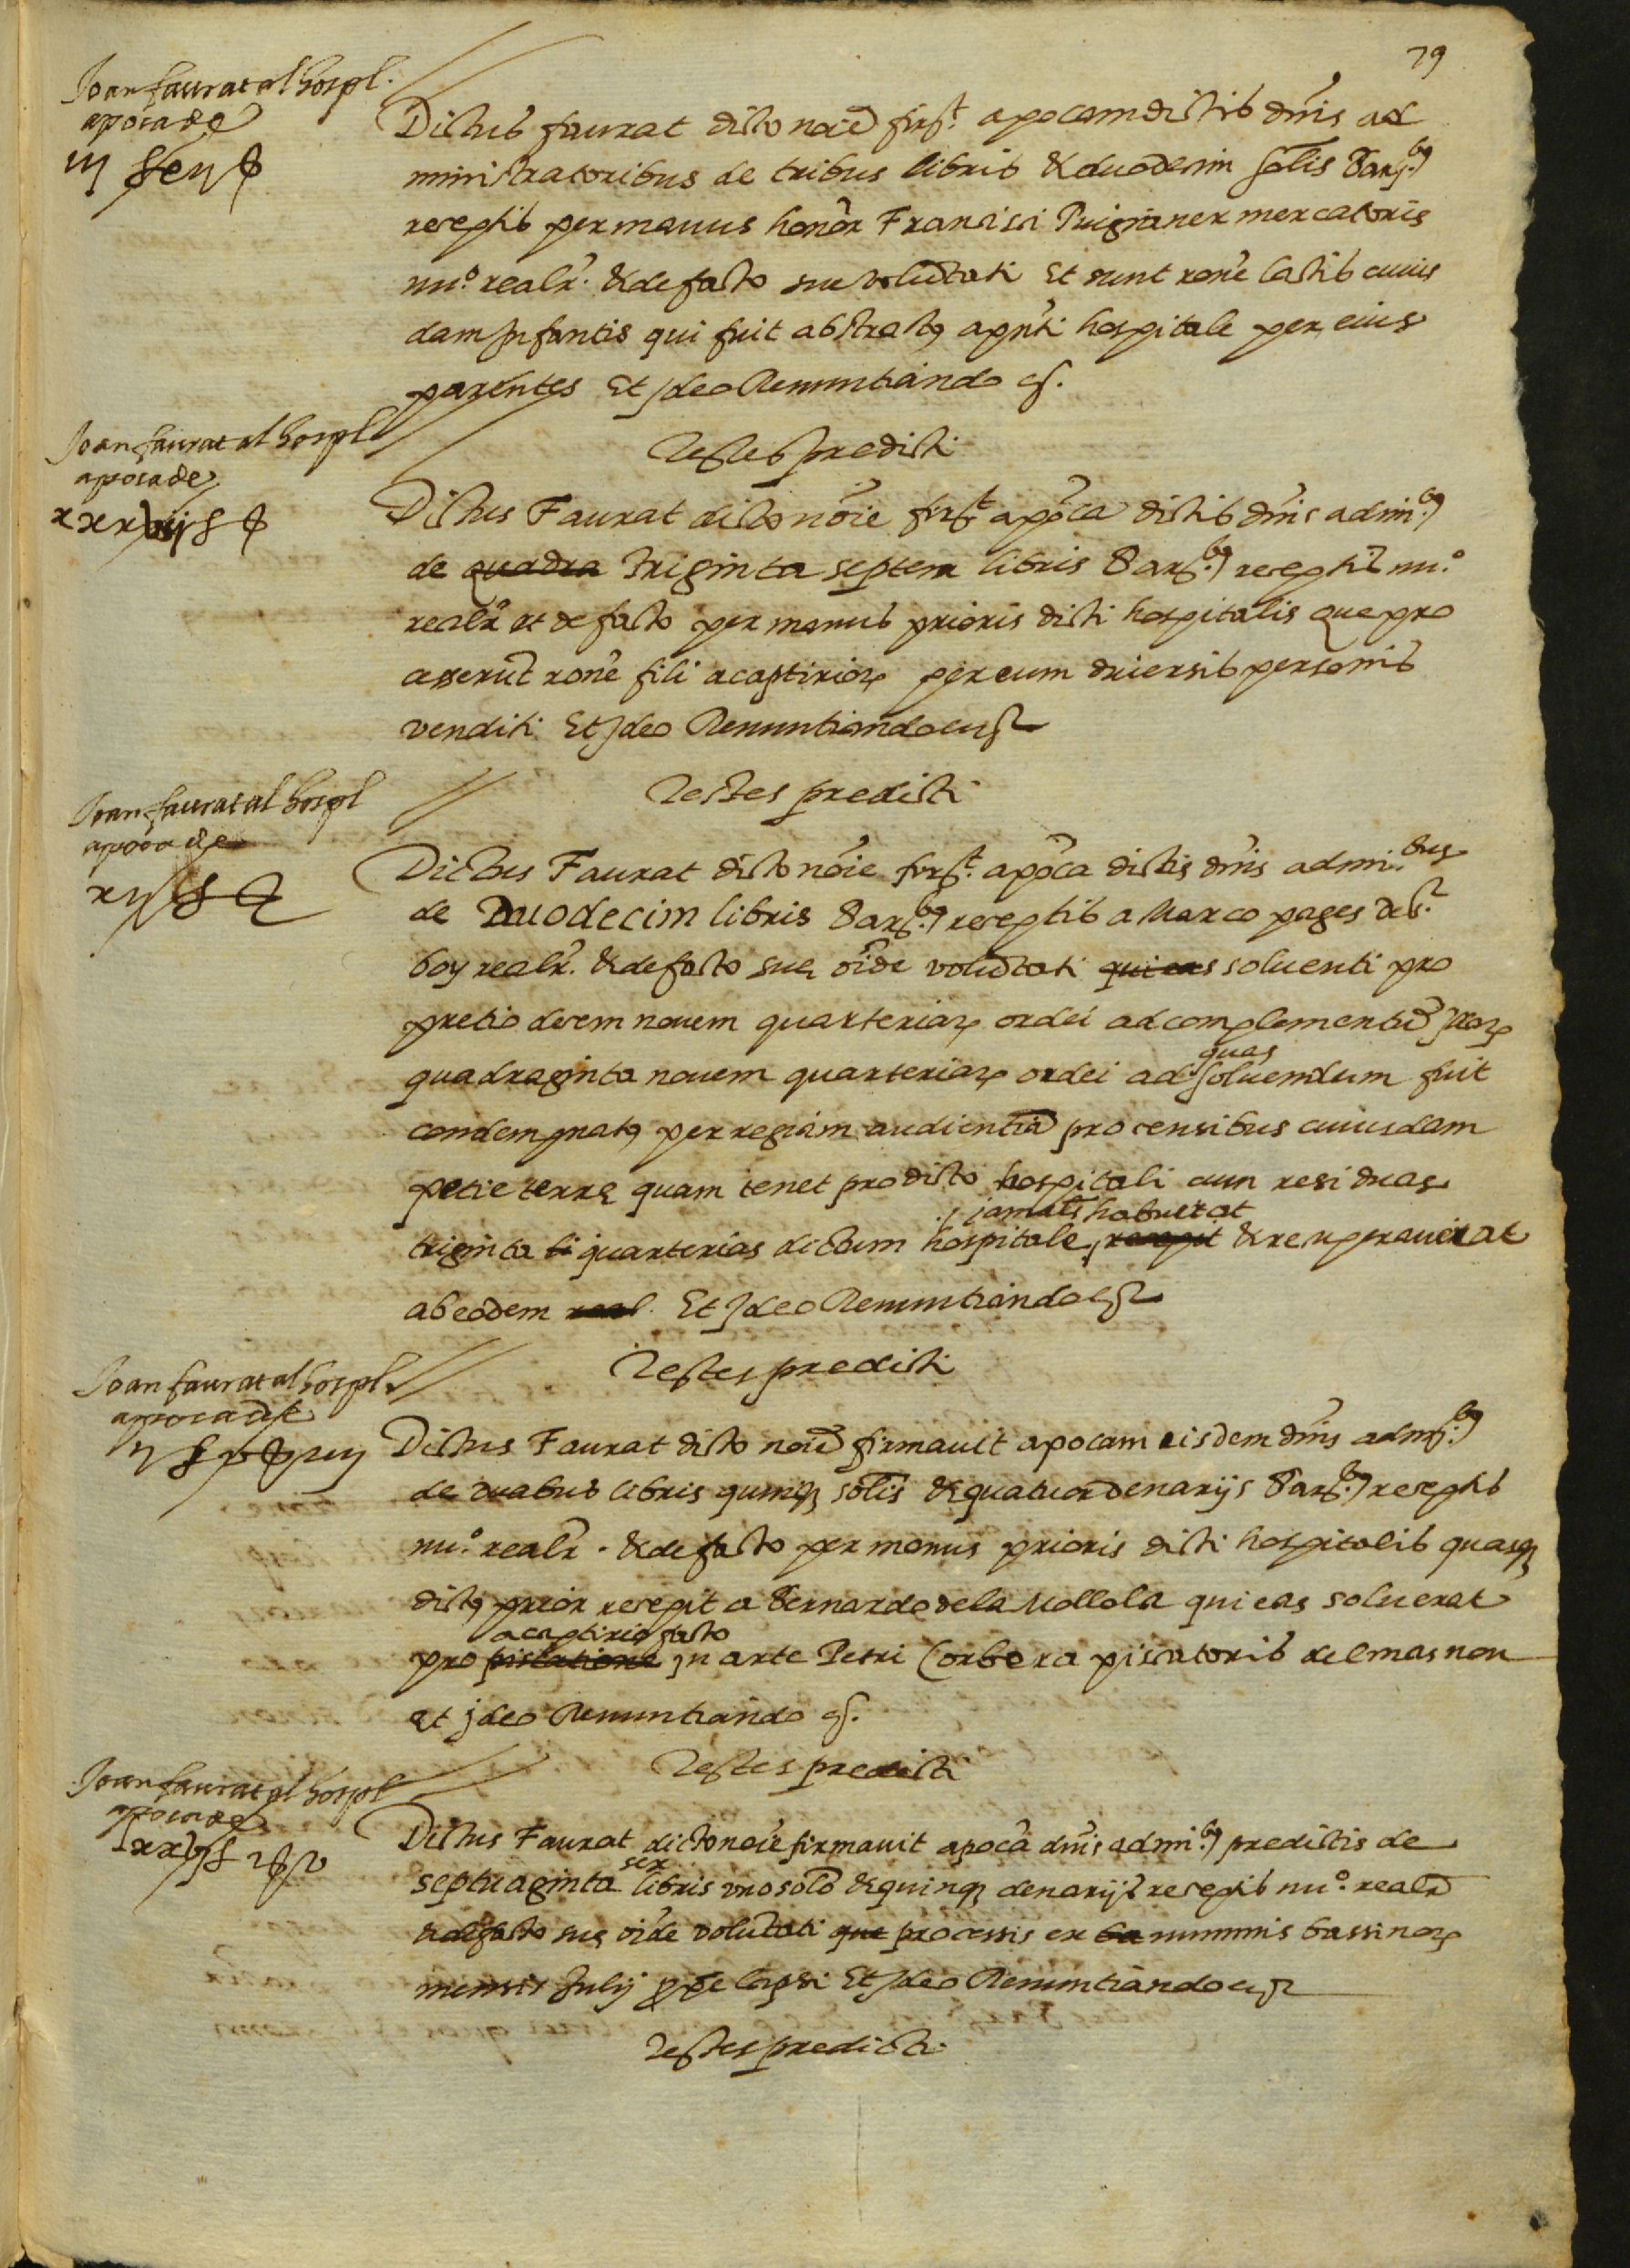 79
Joan faurat al hospl.
apoca de
iij ℔ xij ß
Dictus faurat dicto noīe firt. apocam dictis dn̄is ad
ministratoribus de tribus libris & duodecim solis Barbus
receptis per manus honor Francisci Puigianer mercatoris
nu.o realr. & de facto sue volūtati Et sunt rōne lactis cuius
dam Infantis qui fuit abstractus a pn̄ti hospitale per eius
parentes Et Ideo Renuntiando &.
Testes predicti
Joan faurat al hospl
apoca de
xxxvij ℔
Dictus Faurat dicto nōie firt apōca dictis dn̄is admi.bus
de quadra Triginta septem libris Barbus receptis nu.o
realr et de facto per manus prioris dicti hospitalis que pro
cesserūt rōne fili acaptirior per eum diversis personis
venditi Et Ideo Renuntiando &
Testes predicti
Joan faurat al hospl
apoca de
xij ℔
Dictus Faurat dicto nōie firt. apōca dictis dn̄is admi.bus
de Duodecim libris Barbus receptis a Marco pages de St.
boy realr. & de facto sue oīde volūtati qui eas solventi pro
pretio decem novem quarteriar ordei ad complementū illar
quadraginta novem quarteriar ordei ad quas solvendum fuit
condempnatus per regiam audientiā pro censibus cuiusdam
petie terre quam tenet pro dicto hospitali cum residuas
triginta li quarterias dictum hospitale, recepit jam habuerat & recuperaverat
ab eodem real. Et Ideo Renuntiando &
Testes predicti
Joan faurat al hospl.
apoca de
ij ℔ v ß iiij
Dictus Faurat dicto noīe firmavit apocam eisdem dn̄is admi.bus
de duabus libris quinque solis & quatuor denarijs Barbus receptis
nu.o realr. & de facto per manus prioris dicti hospitalis quasque
dictus prior recepit a Bernardo de la Mollola qui eas solverat
pro piscatione acaptirio facto in arte Petri Corbera piscatoris del masnou
Et ideo Renuntiando &.
Testes predicti
Joan faurat al hospl
apoca de
lxxvj ℔ j ß v
Dictus Faurat dicto noīe firmavit apocā dn̄is admi.bus predictis de
septuaginta sex libris uno solo & quinque denarijs receptis nu.o realr
& de facto sue oīde volūtati que processis ex ba nummis bassinor
mensis Julij ppe lapsi Et Ideo Renuntiando &
Testes predicti.